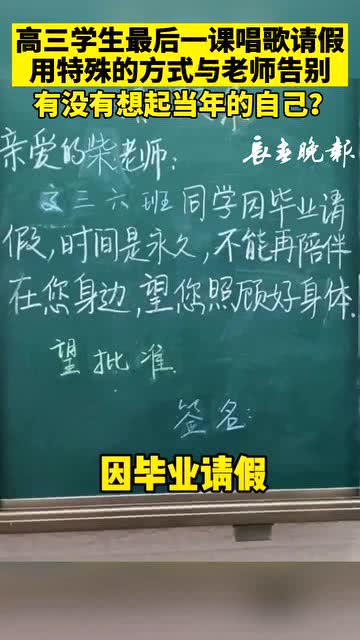 高三学生最后一课唱歌请假
用特殊的方式与老师告别
有没有想起当年的自己？
长春晚报
亲爱的柴老师：
文三六班同学因毕业请
假，时间是永久，不能再陪伴
在您身边，望您照顾好身体.
望批准
签名：
因毕业请假